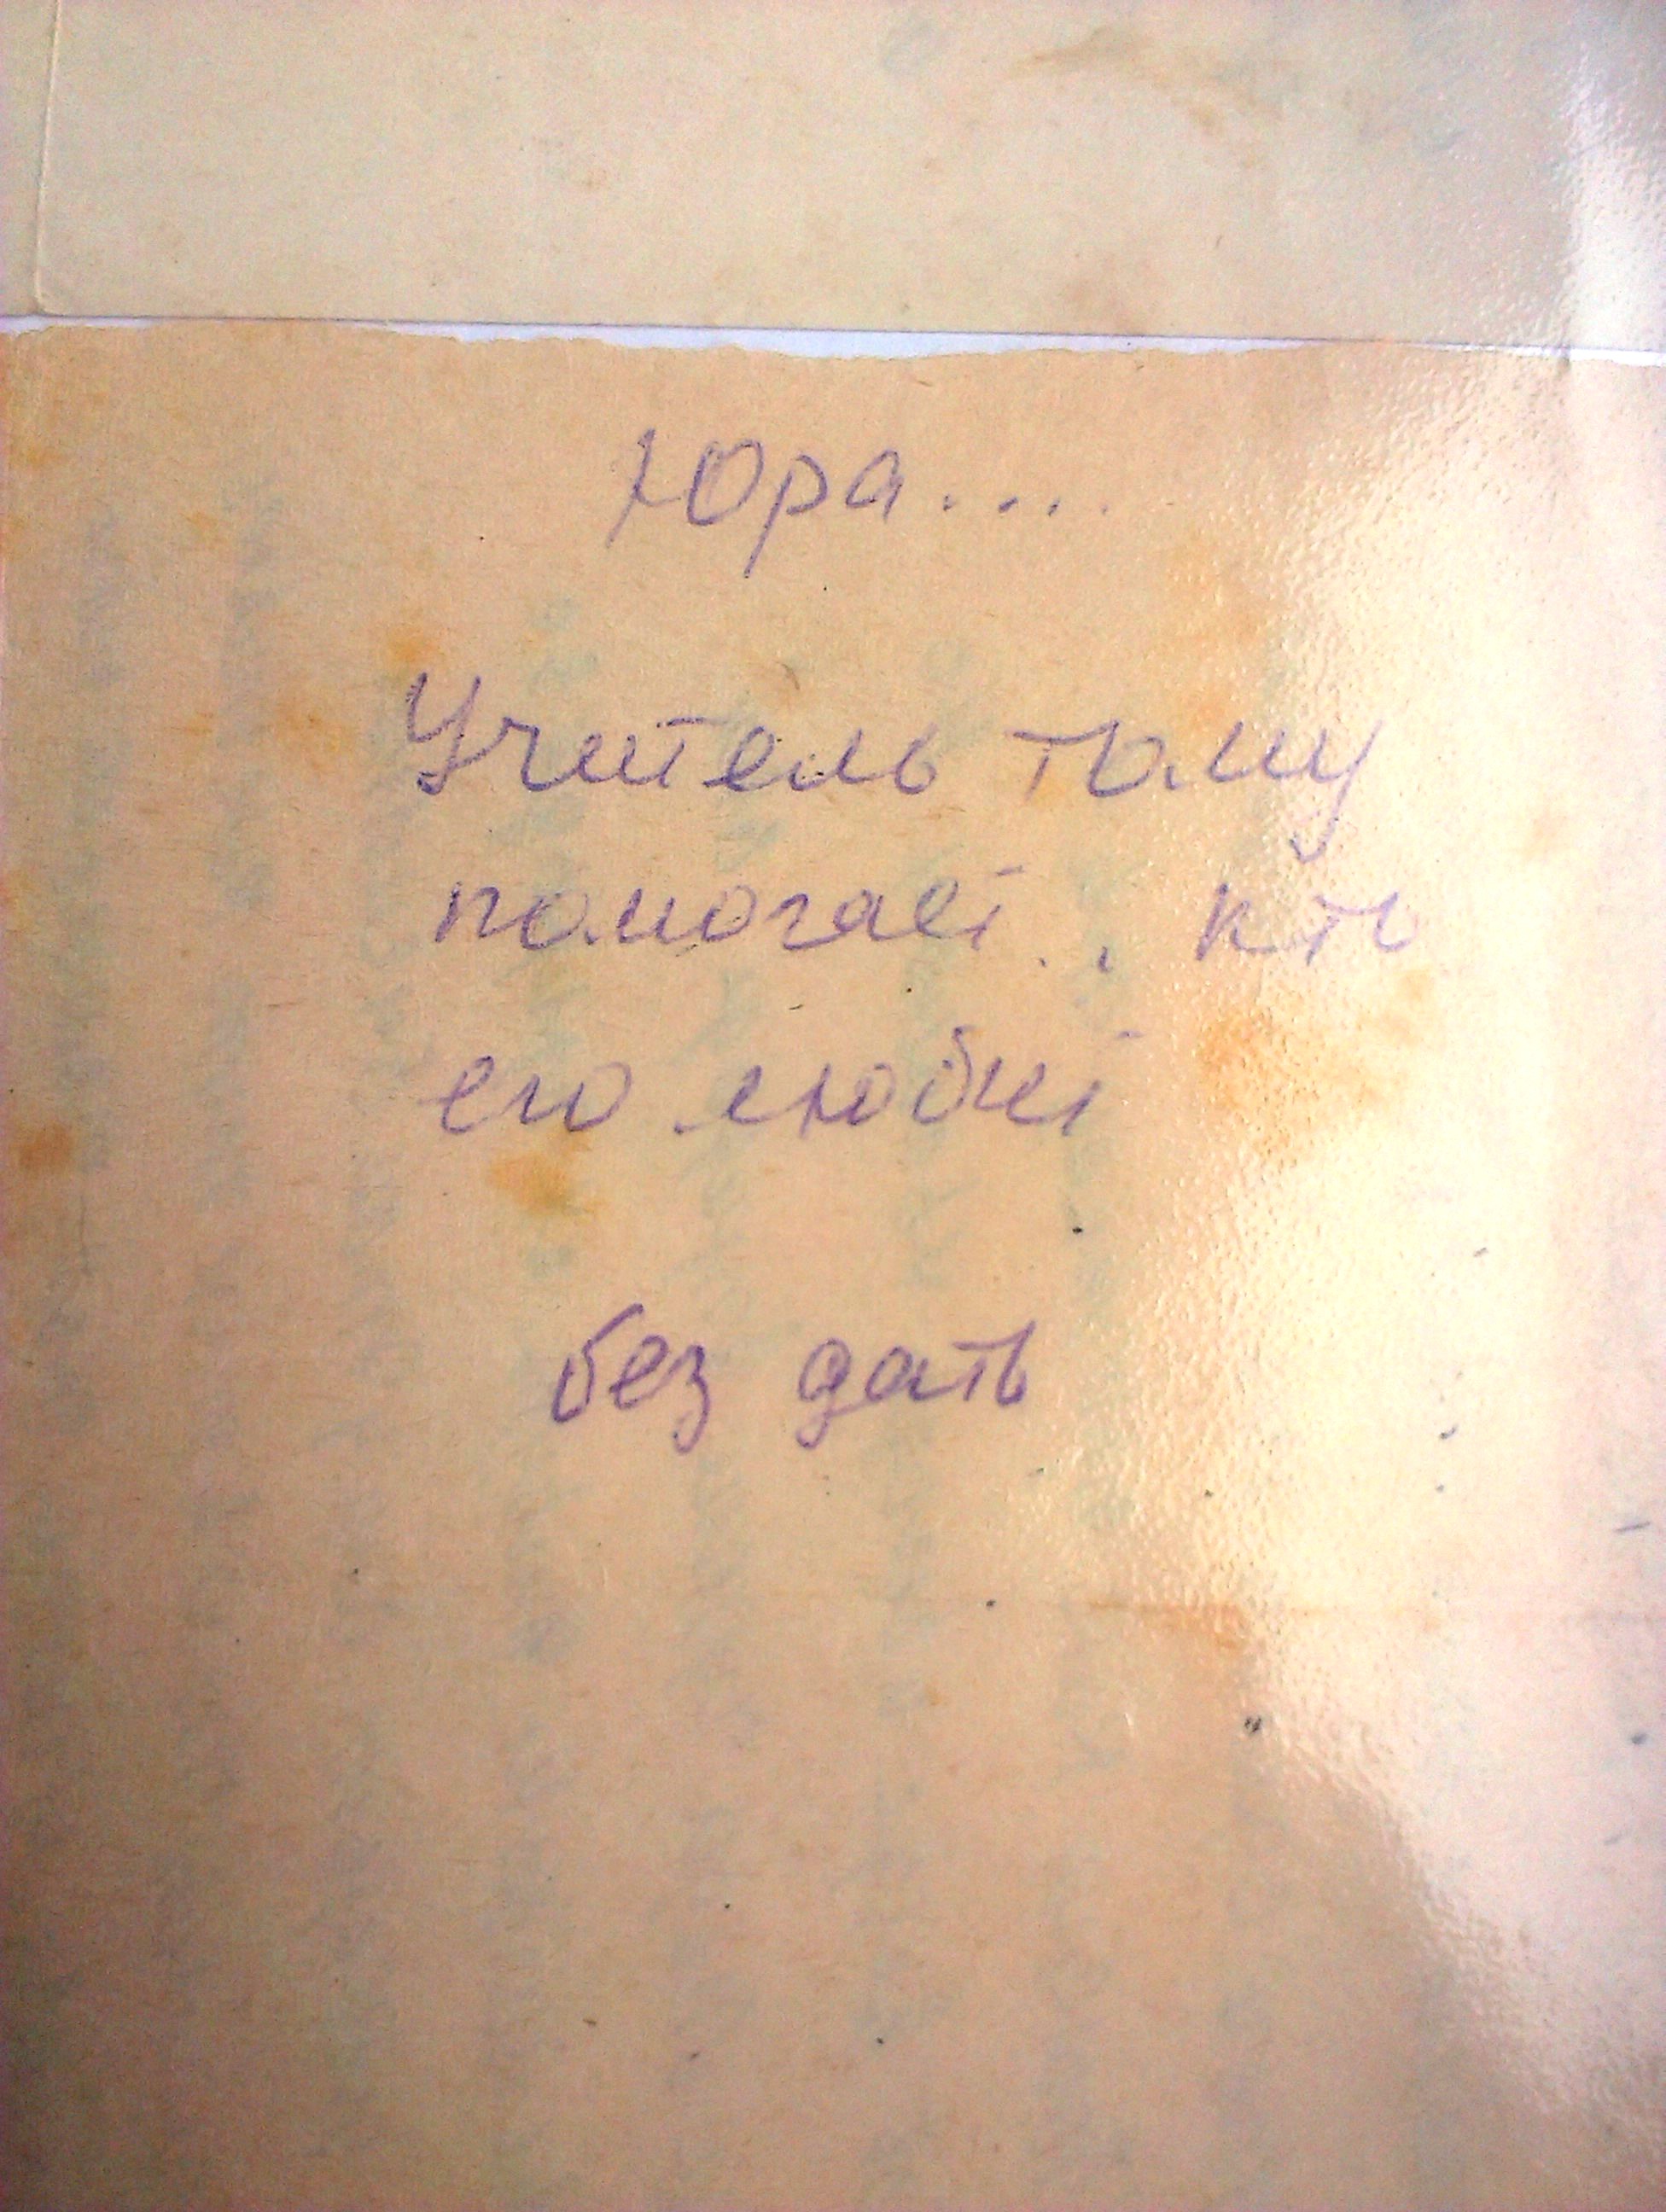 Юра....
Учитель тому
помогает., кто
его любит
без дать